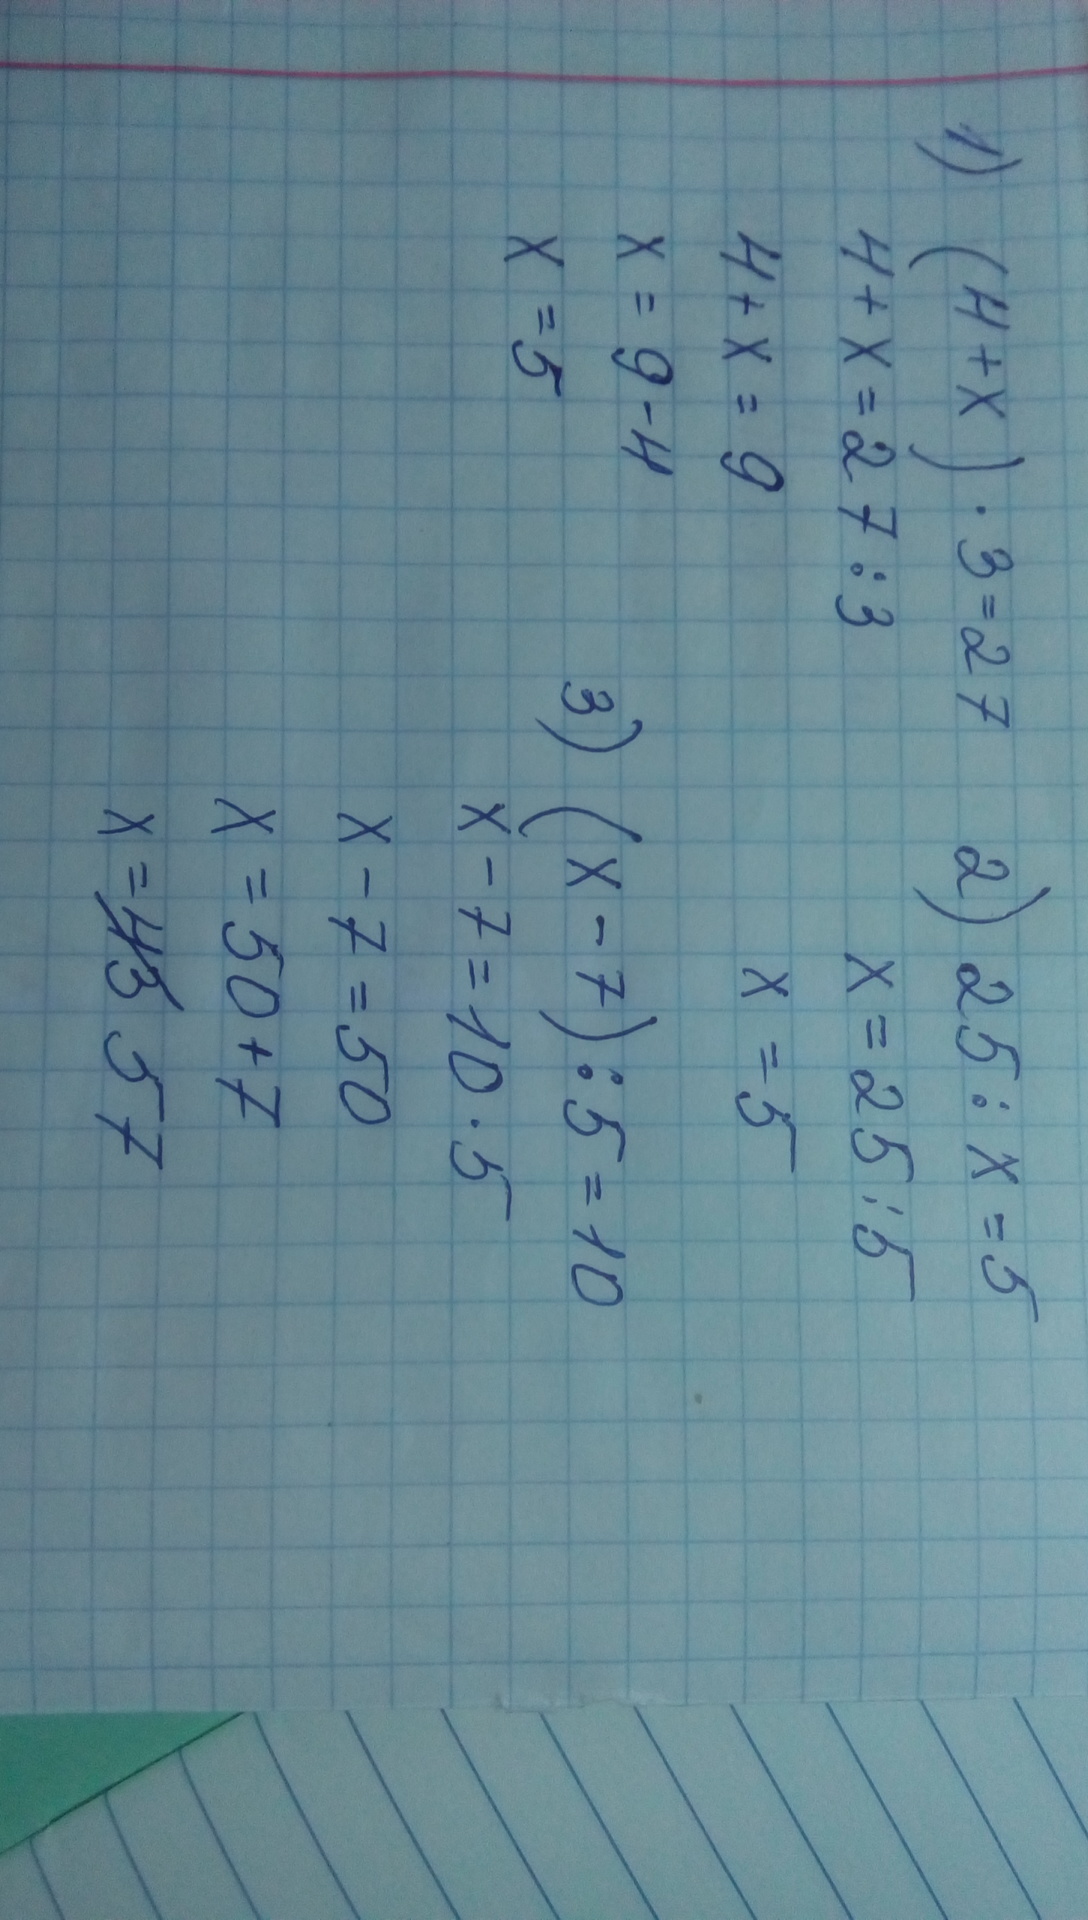 1) (4+x)·3=27
4+x=27:3
4+x=9
x=9-4
x=5
2) 25:x=5
x=25:5
x=5
3) (x-7):5=10
x-7=10·5
x-7=50
x=50+7
x=43 57